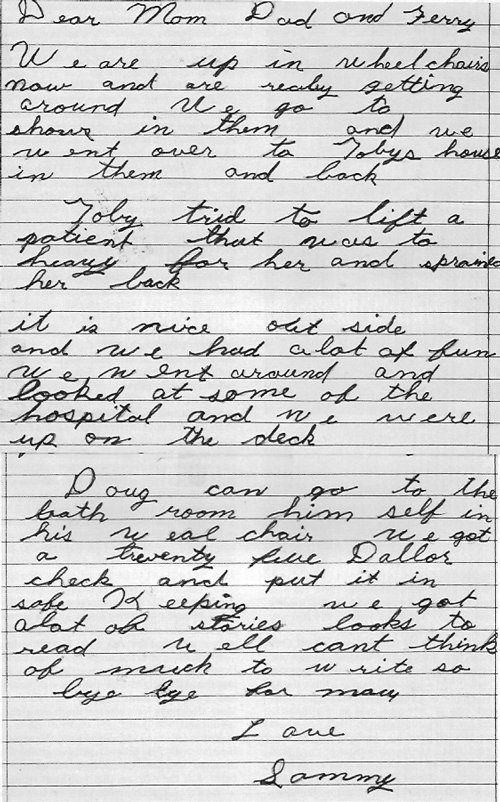 Dear Mom Dad and Jerry
We are up in wheelchairs
now and are realy getting
around We go to
shows in them and we
went over to Tobys house
in them and back
Toby trid to lift a
patient that was to
heavy for her and sprained
her back
it is nice out side
and we had alot of fun
we went around and
looked at some of the
hospital and we were
up on the deck
Doug can go to the
bath room him self in
his weal chair we got
a twenty five Dallor
check and put it in
safe Keeping we got
alot of stories books to
read well cant think
of much to write so
bye bye for now
Love
Sammy